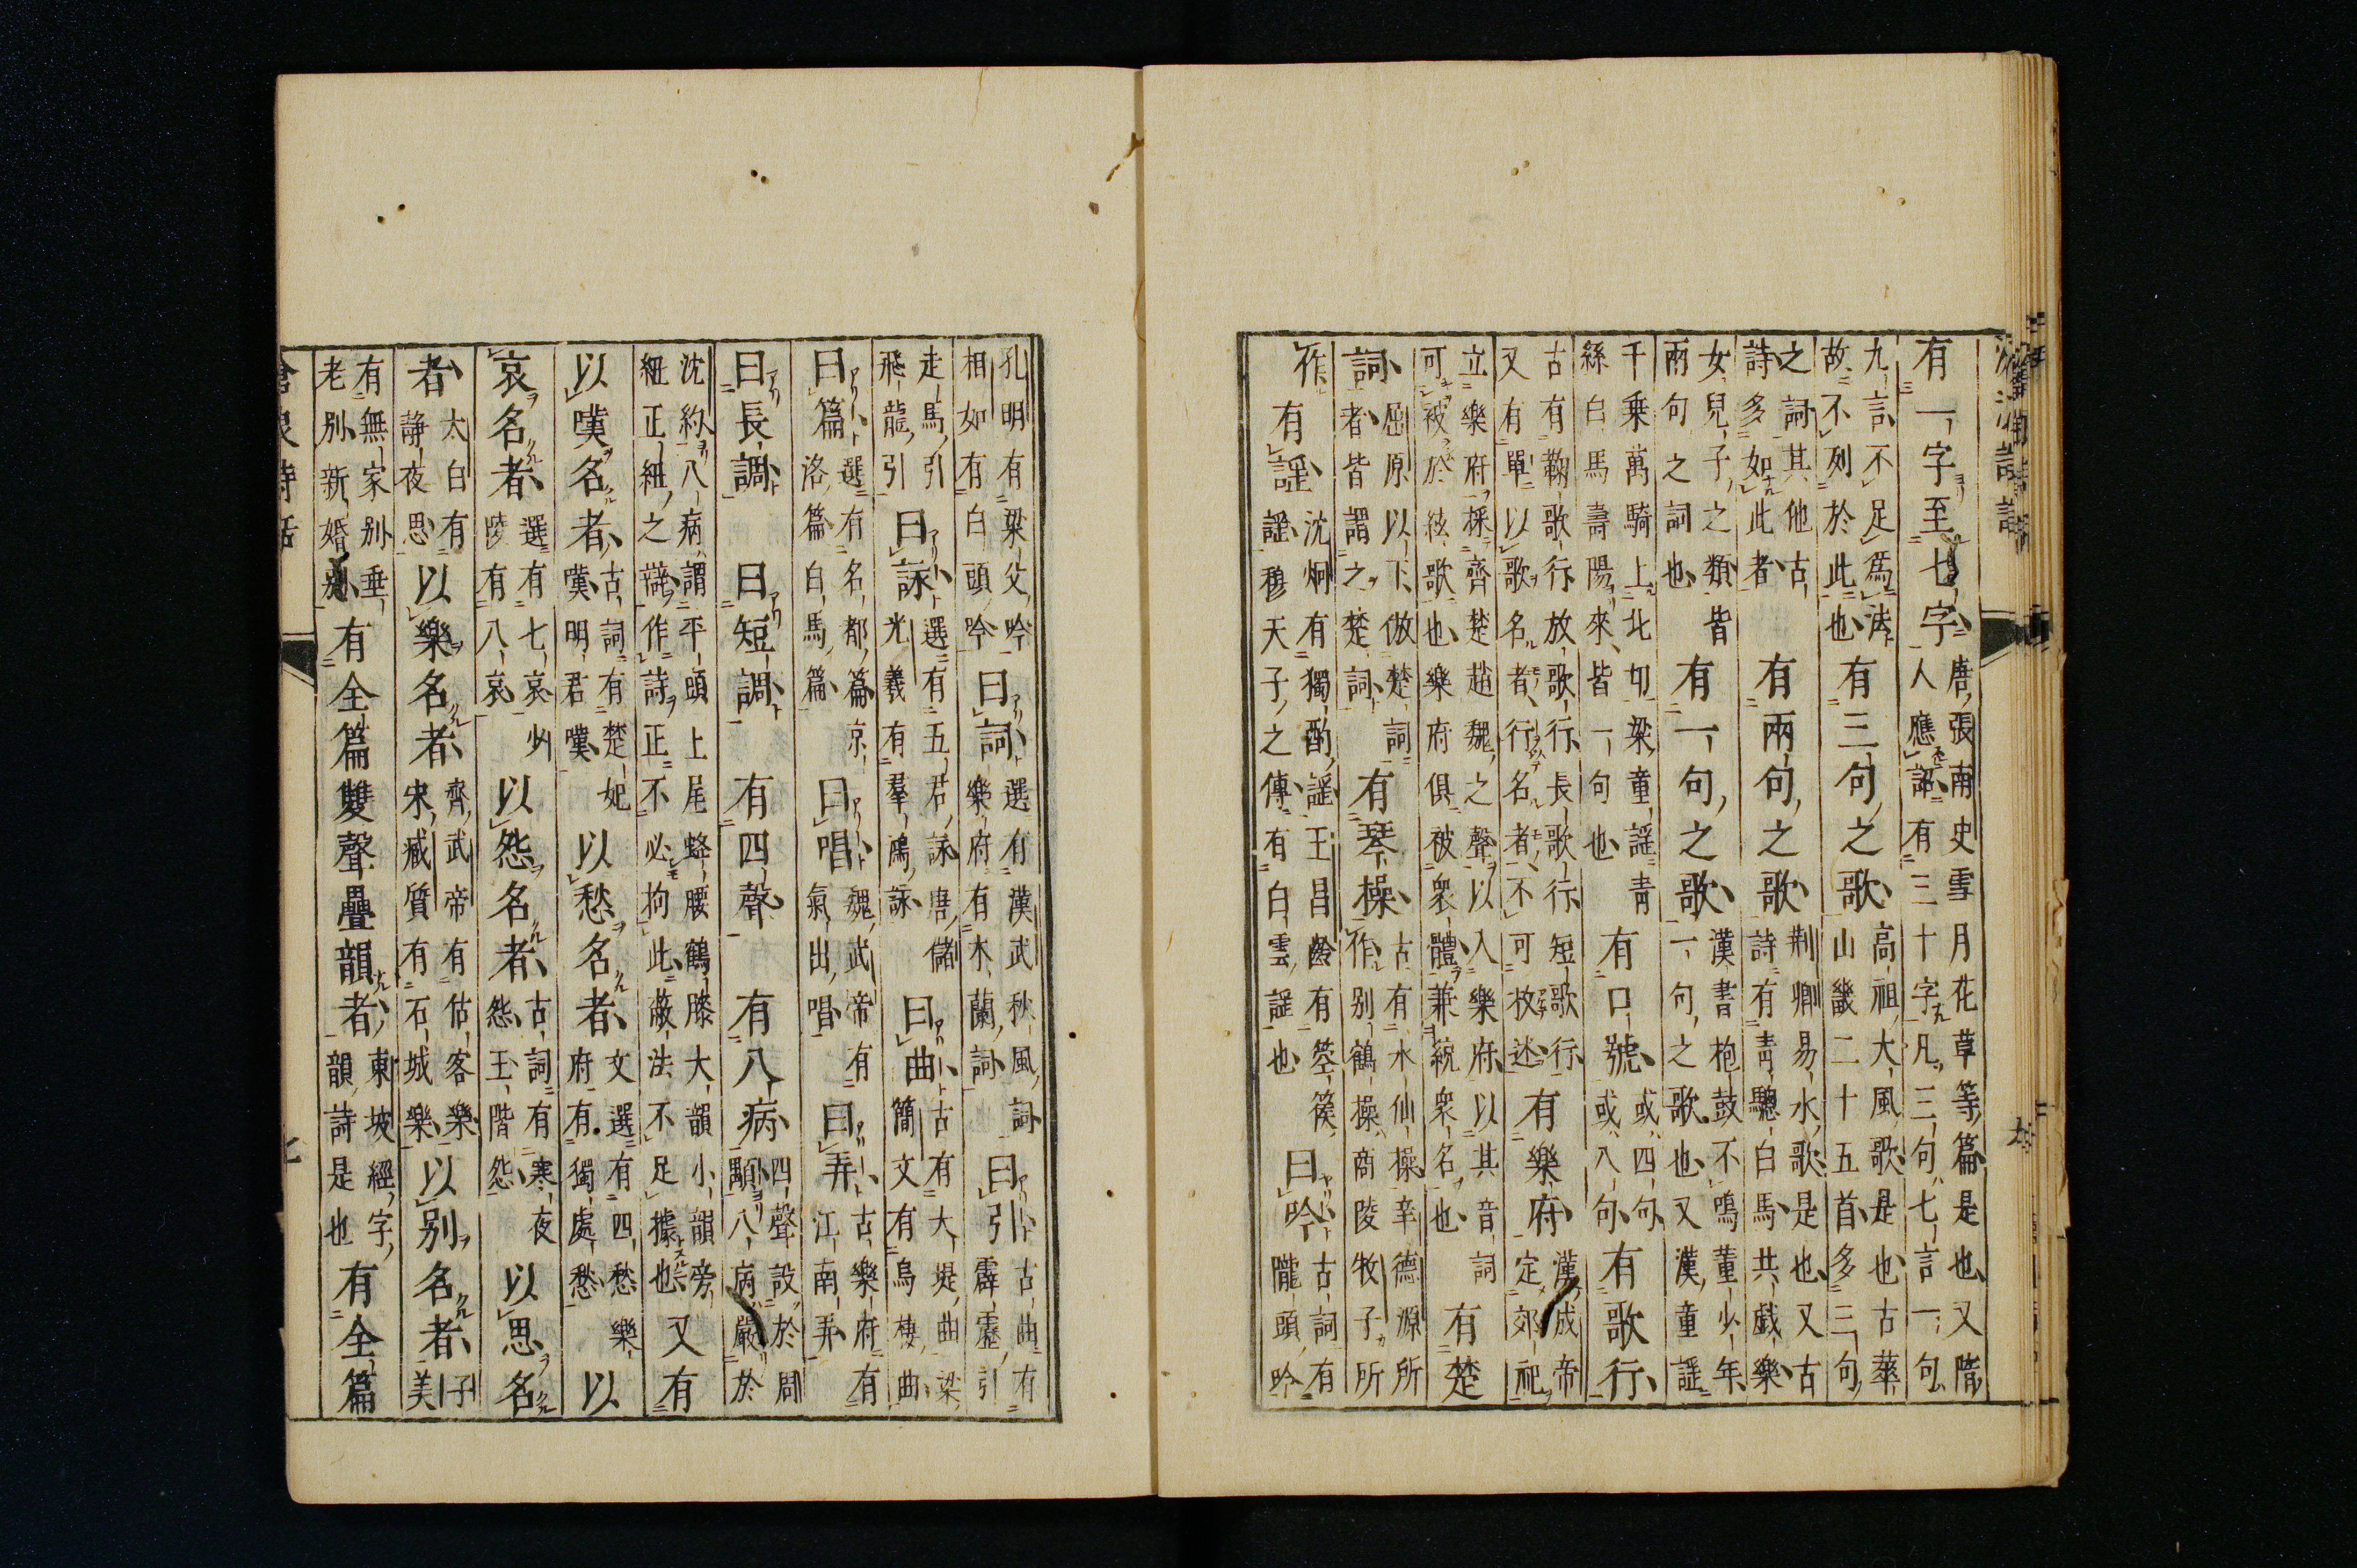 有一字至七字唐張南史雪月花草等篇是也又隋
人應詔有三十字凡三句七言一句
九言不足爲法
故不列於此也有三句之歌高祖大風歌是也古華
山畿二十五首多三句
之詞其他古
詩多如此者有兩句之歌荆卿易水歌是也又古
詩有青驄白馬共戲樂
女兒子之類皆
兩句之詞也有一句之歌漢書枹鼓不鳴董少年
一句之歌也又漢童謠
千乗萬騎上北如梁童謠青
絲白馬壽陽來皆一句也有口號或四句
或八句有歌行
古有鞠歌行放歌行長歌行短歌行
又有單以歌名者行名者不可枚述有樂府漢成帝
定郊祀
立樂府採齊楚趙魏之聲以入樂府以其音詞
可被於絃歌也樂府俱被衆體兼統衆名也有楚
詞屈原以下倣楚詞
者皆謂之楚詞有琴操古有水仙操辛德源所
作別鶴操商陵牧子所
作有謠沈炯有獨酌謠王昌齡有箜篌
謠穆天子之傳有白雲謠也曰吟古詞有
隴頭吟
孔明有梁父吟
相如有白頭吟曰詞選有漢武秋風詞
樂府有木蘭詞曰引古曲有
霹靂引
走馬引
飛龍引曰詠選有五君詠唐儲
光羲有羣鴻詠曰曲古有大堤曲梁
簡文有烏棲曲
曰篇選有名都篇京
洛篇白馬篇曰唱魏武帝有
氣出唱曰弄古樂府有
江南弄
曰長調曰短調有四聲有八病四聲設於周
顒八病嚴於
沈約八病謂平頭上尾蜂腰鶴膝大韻小韻旁
紐正紐之辯作詩正不必拘此蔽法不足據也又有
以嘆名者古詞有楚妃
嘆明君嘆以愁名者文選有四愁樂
府有獨處愁以
哀名者選有七哀少
陵有八哀以怨名者古詞有寒夜
怨玉階怨以思名
者太白有
靜夜思以樂名者齊武帝有估客樂
宋臧質有石城樂以别名者子
美
有無家别垂
老别新婚别有全篇雙聲疊韻者東坡經字
韻詩是也有全篇
滄浪詩話
七